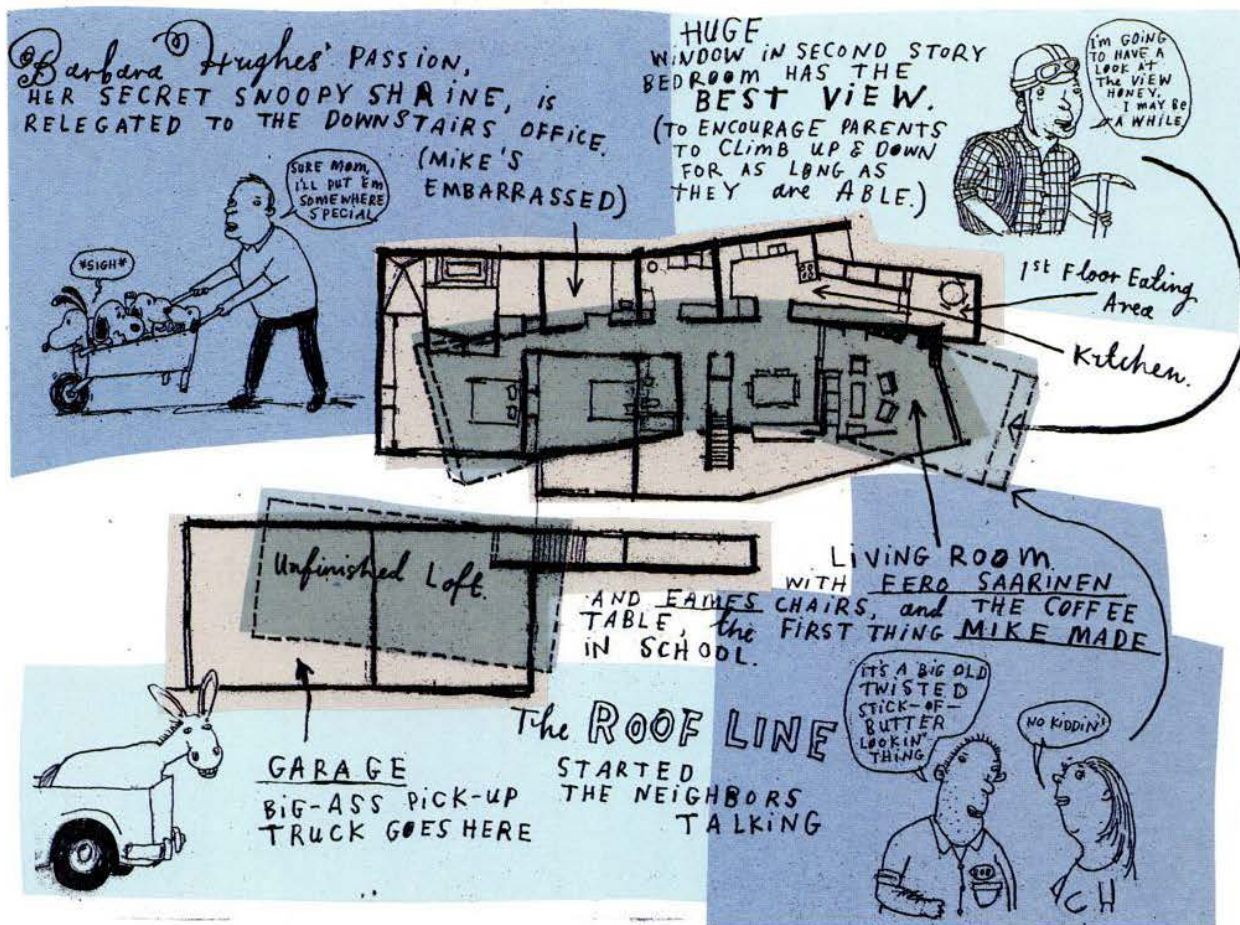 Barbara Hughes' PASSION,
HER SECRET SNOOPY SHRINE, is
RELEGATED TO THE DOWNSTAIRS OFFICE.
(MiKE'S
EMBARRASSED)
SURE MOM,
I'LL PUT 'EM
SOMEWHERE
SPECIAL
*SIGH*
HUGE
WINDOW IN SECOND STORY
BEDROOM HAS THE
BEST VIEW.
(TO ENCOURAGE PARENTS
TO CLIMB UP & DOWN
FOR AS LONG AS
THEY are ABLE.)
I'M GOING
TO HAVE A
LOOK AT
The VIEW
HONEY.
I MAY BE
A WHILE.
1st Floor Eating
Area
Kitchen.
Unfinished Loft.
LiViNG ROOM
WITH EERO SAARINEN
AND EAMES CHAIRS, and THE COFFEE
TABLE, the FIRST THING MIKE MADE
IN SCHOOL.
GARAGE
BiG-ASS PiCK-UP
TRUCK GOES HERE
The ROOF LINE
STARTED
THE NEIGHBORS
TALKING
IT'S A BIG OLD
TWISTED
STICK-OF-
BUTTER
LOOKIN'
THING
NO KIDDIN'!
BOB
CH